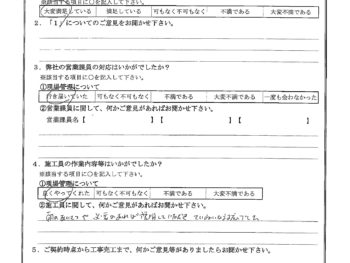 ※該当する項目に○を記入して下さい。
大変満足している 満足している 可もなく不可もなく 不満である 大変不満である
2. 「1」についてのご意見をお聞かせ下さい。
3. 弊社の営業課員の対応はいかがでしたか?
※該当する項目に○を記入して下さい。
①現場管理について
行き届いていた 可もなく不可もなく 不満である 大変不満である 一度も会わなかった
②営業課員に関して、何かご意見があればお聞かせ下さい。
営業課員名【 】【 】【 】
4. 施工員の作業内容等はいかがでしたか?
※該当する項目に○を記入して下さい。
①現場管理について
良くやってくれた 可もなく不可もなく 不満である 大変不満である
②施工員に関して、何かご意見があればお聞かせ下さい。
5. ご契約時点から工事完工まで、何かご意見等がありましたらお聞かせ下さい。